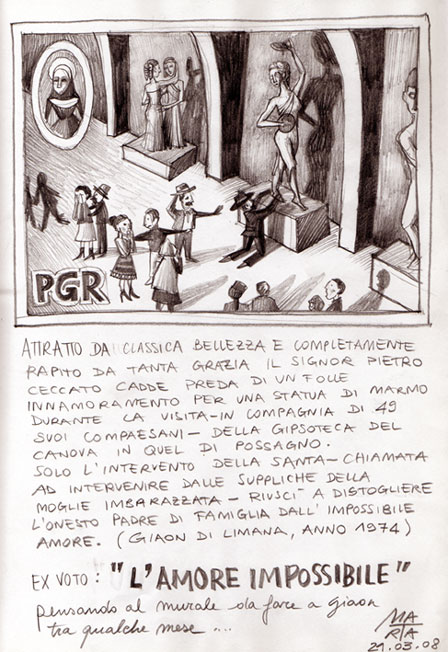 PGR
ATTRATTO DA CLASSICA BELLEZZA E COMPLETAMENTE
RAPITO DA TANTA GRAZIA IL SIGNOR PIETRO
CECCATO CADDE PREDA DI UN FOLLE
INNAMORAMENTO PER UNA STATUA DI MARMO
DURANTE LA VISITA-IN COMPAGNIA DI 49
SUOI COMPAESANI- DELLA GIPSOTECA DEL
CANOVA IN QUEL DI POSSAGNO.
SOLO L'INTERVENTO DELLA SANTA-CHIAMATA
AD INTERVENIRE DALLE SUPPLICHE DELLA
MOGLIE IMBARAZZATA - RIUSCÌ A DISTOGLIERE
L'ONESTO PADRE DI FAMIGLIA DALL'IMPOSSIBILE
AMORE. (GIAON DI LIMANA, ANNO 1974)
EX VOTO: "L'AMORE IMPOSSIBILE"
pensando al murale da fare a giaon
tra qualche mese ....
MARTA
21.03.08